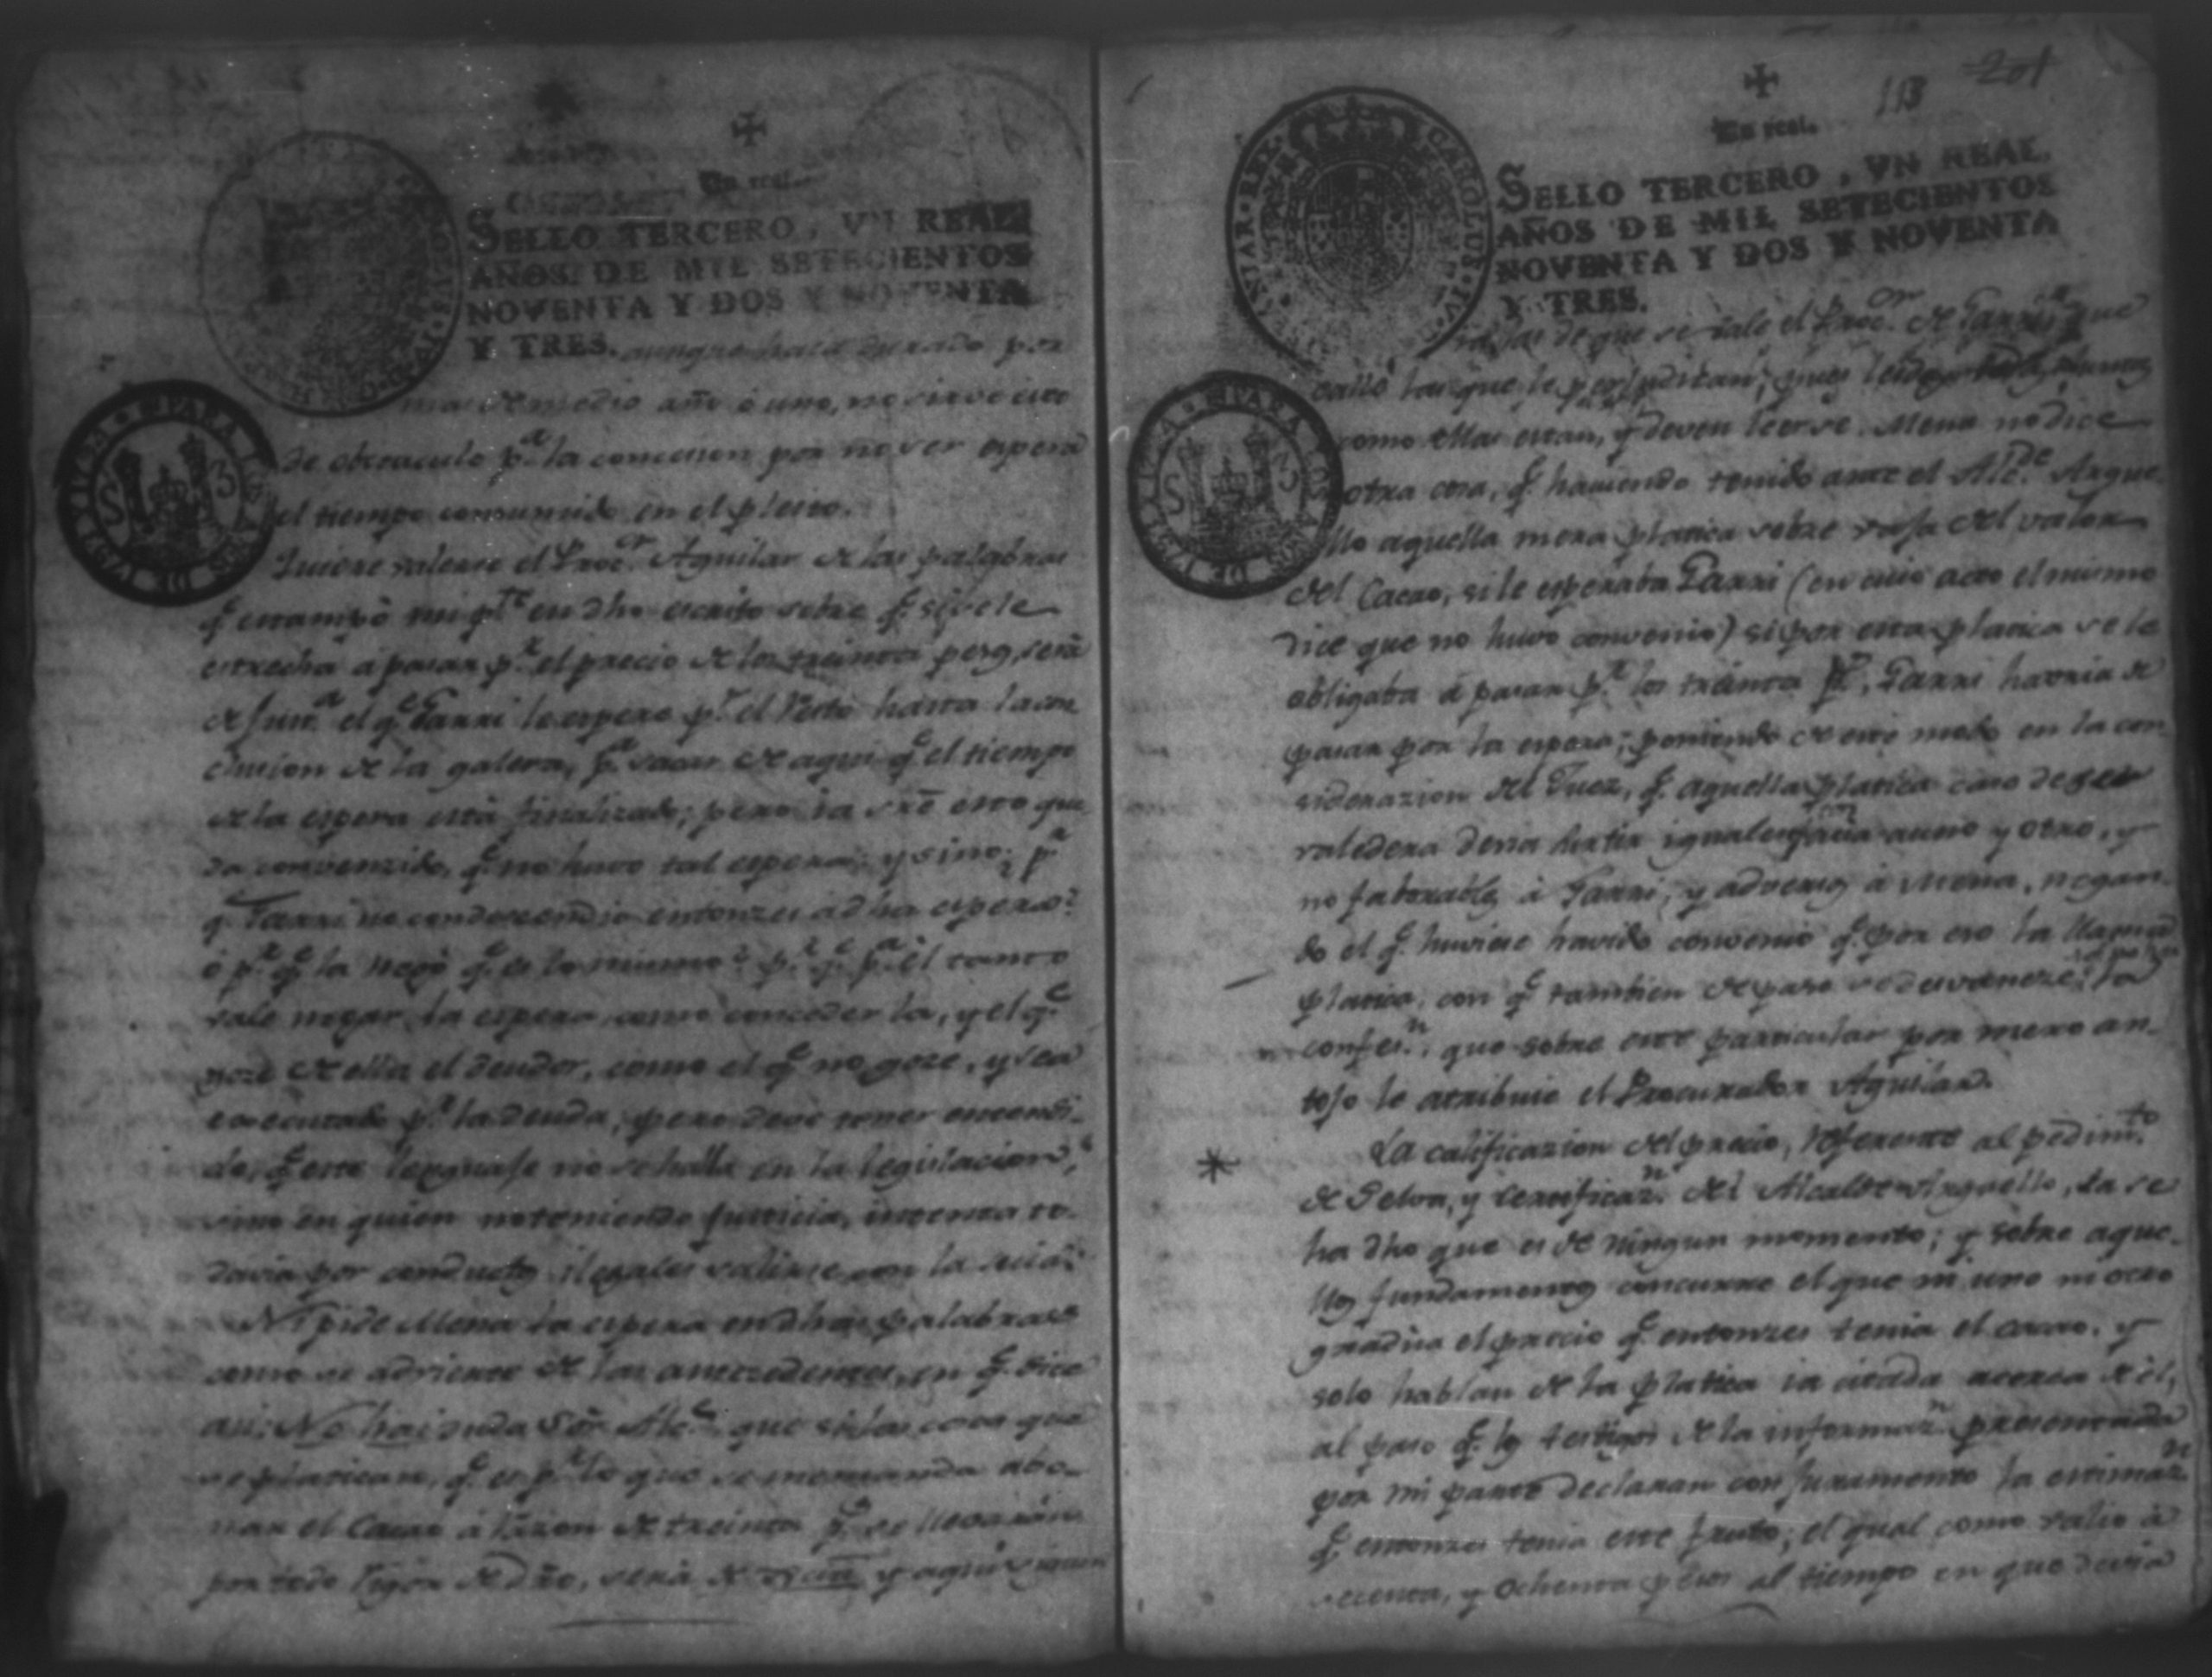 Un real.
SELLO TERCERO, VN REAL,
AÑOS DE MIL SETECIENTOS
NOVENTA Y DOS Y NOVENTA
Y TRES. aunque haia durado por
mas de medio año ó uno, no sirve esto
de obstaculo p.ª la concesion por no ser espera
el tiempo consumido en el pleito.
Quiere valerse el Proc.or Aguilar de las palabras
q.e estampò mi p.te en dho escrito sobre q.e si se le
estrecha á pasar p.r el precio de los treinta pesos, será
de Just.a el q.e Parri le espere p.r el resto hasta la con
clucion de la galera, p.a sacar de aqui q.e el tiempo
de la espera está finalizado; pero ia sre esto que
da convenzido, q.e no huvo tal espera; y sino, p.r
q.e Parri no condescendio entonzes a dha espera?
ó p.r q.e la negò q.e es lo mismo? p.r q.e p.a él tanto
vale negar la espera como conceder la, y el q.e
goze de ella el deudor, como el q.e no goze, y sea
executado p.r la deuda; pero deve tener entendi-
do, q.e este lenguaje no se halla en la legislacion,
sino en quien no teniendo justicia, intenta to-
davia por conductos ilegales salirse con la suia.
Ni pide Mena la espera en dhas palabras
como se advierte de las antecedentes, en q.e dice
asi: No hai duda Sor Alc.e que si las cosas que
se platican, q.e es p.r lo que se me manda abo-
nar el Cacao á razon de treinta p.s se llevarán
por todo rigor de dro, será de
201
113
Un real.
SELLO TERCERO, VN REAL,
AÑOS DE MIL SETECIENTOS
NOVENTA Y DOS Y NOVENTA
Y TRES.
de que se vale el Proc.or de Parri que
calló las que le perjudican; pues
como ellas estan, y deven leerse. Mena no dice
otra cosa, q.e haviendo tenido ante el Alc.de Argue
llo aquella mera platica sobre rasa del valor
del Cacao, si le esperaba Parri (en cuio acto el mismo
dice que no huvo convenio) si por esta platica se le
obligaba á pasar p.r los treinta p.s, Parri havria de
pasar por la espera; poniendo de este modo en la con
siderazion del Juez, q.e aquella platica caso de ser
valedera devia surtir igual eficacia a uno y otro, y
no faborables á Parri, y adversos á Mena, negan
do el q.e huviese havido convenio q.e por eso la llama
platica, con q.e tambien de paso se desvaneze la
confes.n, que sobre este particular por mero an-
tojo le atribuie el Procurador Aguilar.
La calificazion del precio, referente al pedim.to
de Selva, y certificaz.n del Alcalde Arguello, ia se
ha dho que es de ningun momento; y sobre aque-
llos fundamentos concurre el que ni uno ni otro
gradua el precio q.e entonzes tenia el cacao, y
solo hablan de la platica ia citada acerca de él,
al paso q.e los testigos de la informaz.n presentada
por mi parte declaran con juramento la estimaz.n
q.e entonzes tenia este fruto; el qual como valio á
sesenta, y ochenta pesos al tiempo en que devia